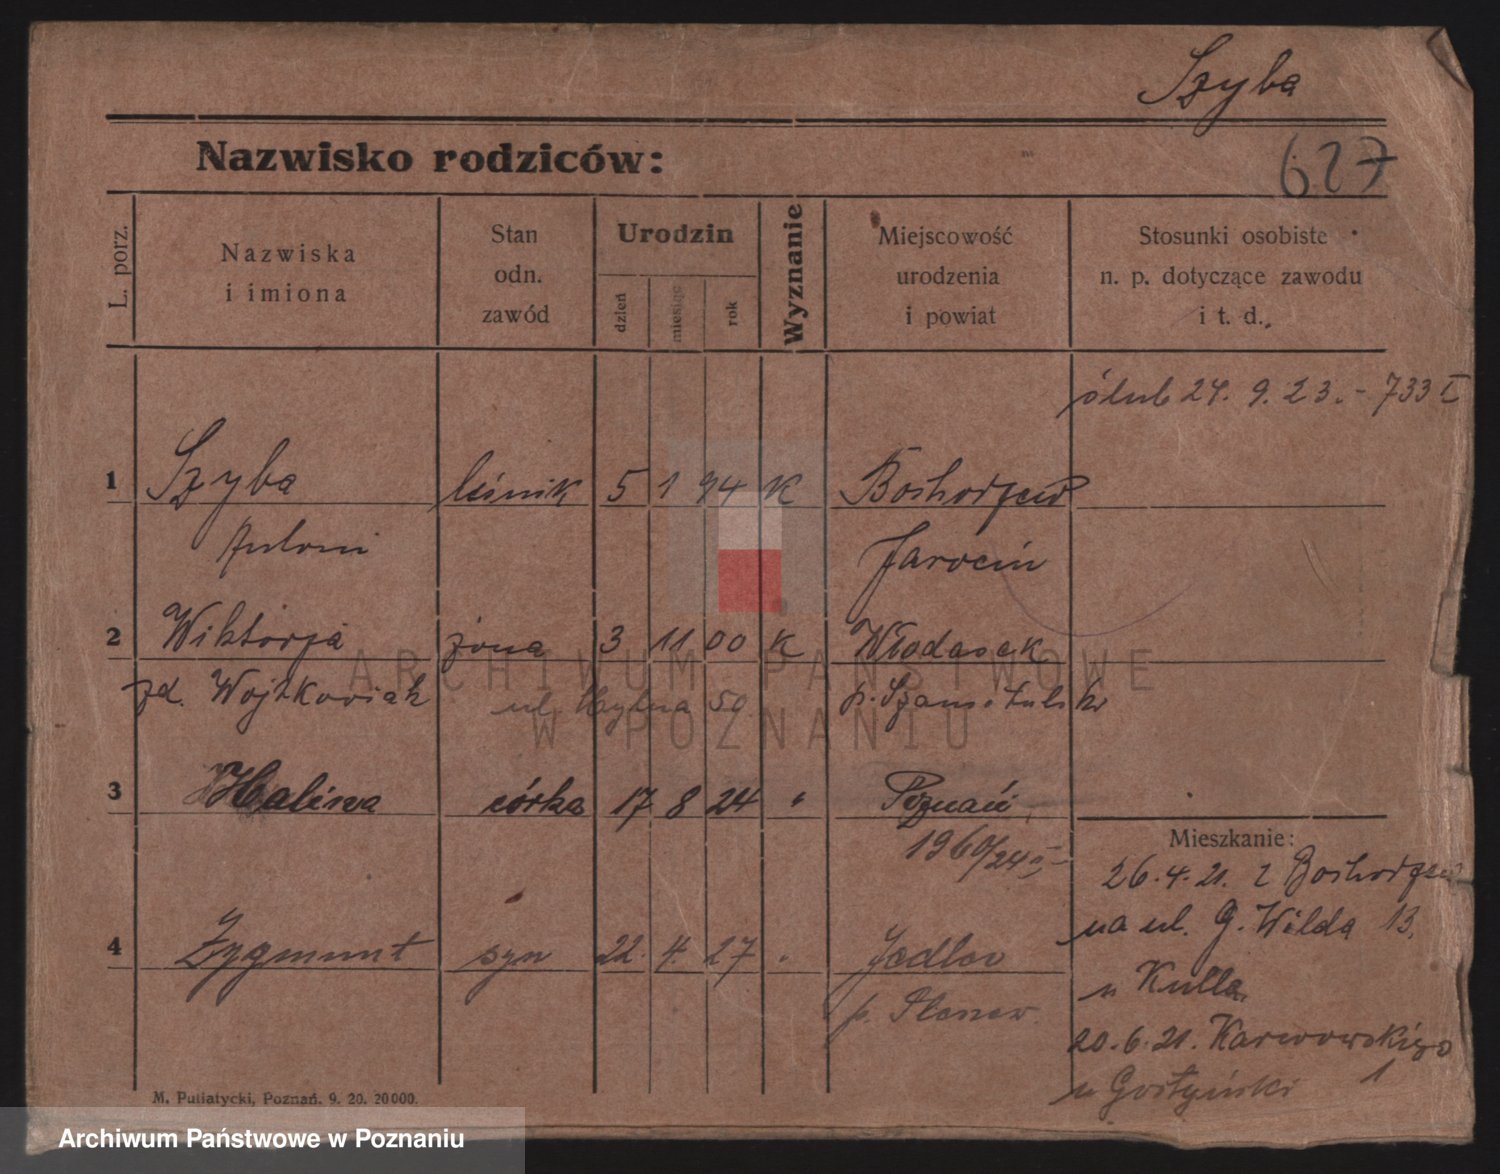 Szyba
627
Nazwisko rodziców:
L. porz.
Nazwiska
i imiona
Stan
odn.
zawód
Urodzin
dzień
miesiąc
rok
Wyznanie
Miejscowość
urodzenia
i powiat
Stosunki osobiste
n. p. dotyczące zawodu
i t. d.
ślub 24. 9. 23. - 733 I
1 Szyba leśnik 5 1 94 K Boshorzew
Antoni Jarocin
2 Wiktorja żona 3 11 00 K
zd. Wojtkowiak ul. 59 p. Szamotulski
3 Halina córka 17 8 24 " Poznań
1960/24
4 Zygmunt syn 22. 4. 27 "
p.
Mieszkanie:
26.4.21. z
na ul. G. Wilda 13.
u Kulla
20.6.21. Karwowskiego
u Gostyński 1
M. Putiatycki, Poznań. 9. 20. 20000.
ARCHIWUM PAŃSTWOWE
W POZNANIU
Archiwum Państwowe w Poznaniu